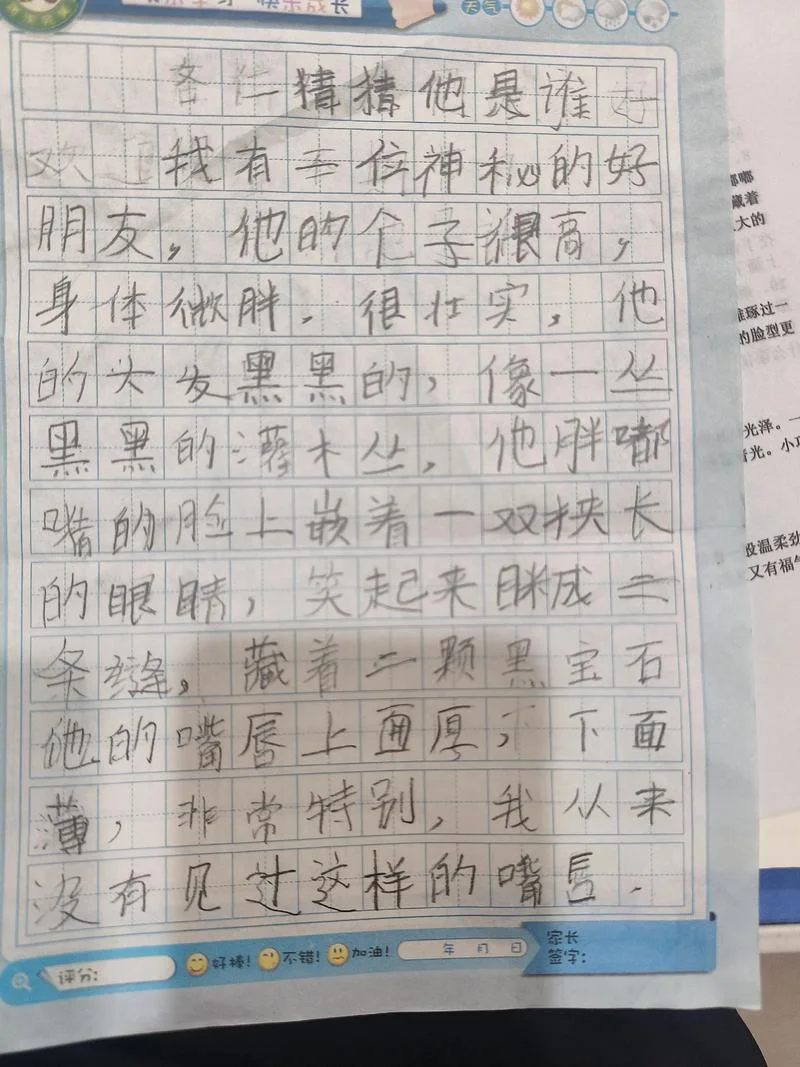 快乐成长
天气
猜猜他是谁
我有一位神秘的好
朋友，他的个子很高，
身体微胖．很壮实，他
的头发黑黑的，像一丛
黑黑的灌木丛，他胖嘟
嘴的脸上嵌着一双挟长
的眼睛，笑起来眯成二
条缝，藏着二颗黑宝石
他的嘴唇上面厚，下面
薄，非常特别，我从来
没有见过这样的嘴唇．
评分： 好棒! 不错! 加油! 年 月 日 家长
签字:
嘟嘟
藏着
大的
琢过一
的脸型更
光泽。一
青光。小巧
温柔劲
又有福气